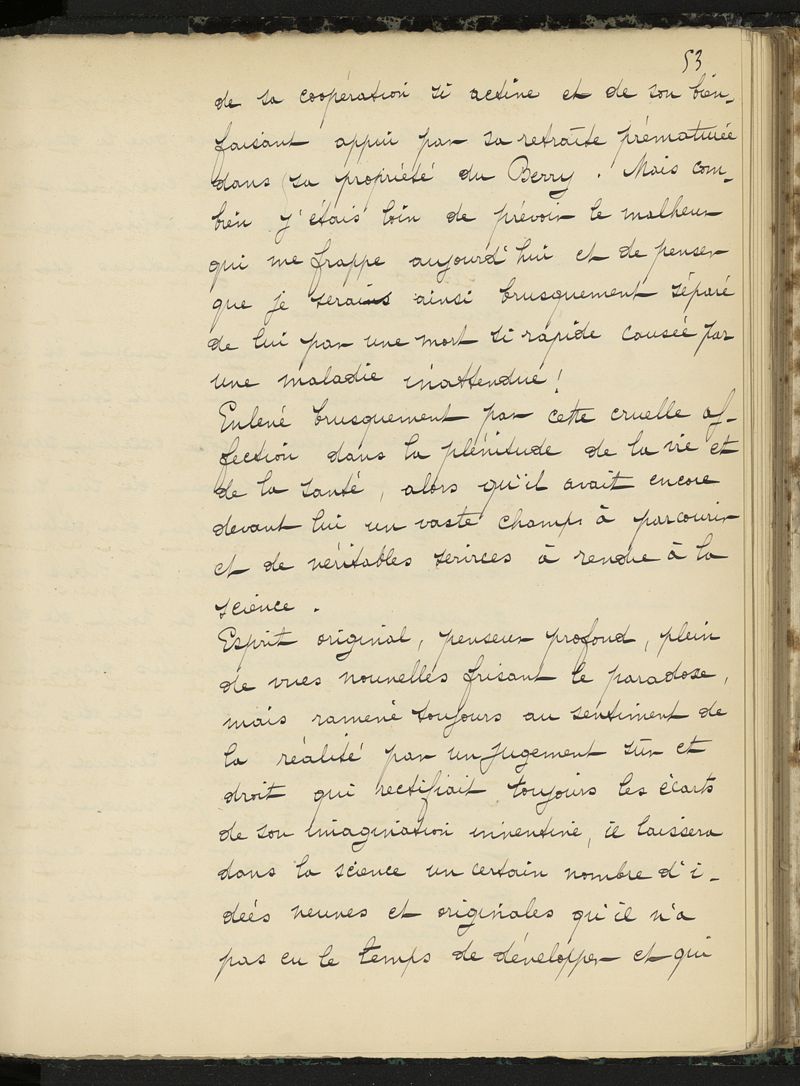 53
de sa coopération si active et de son bien-
faisant appui par sa retraite prématurée
dans sa propriété du Berry. Mais com-
bien j'étais loin de prévoir le malheur
qui me frappe aujourd'hui et de penser
que je serais ainsi brusquement séparé
de lui par une mort si rapide causée par
une maladie inattendue !
Enlevé brusquement par cette cruelle af-
fection dans la plénitude de la vie et
de la santé, alors qu'il avait encore
devant lui un vaste champ à parcourir
et de véritables services à rendre à la
science.
Esprit original, penseur profond, plein
de vues nouvelles frisant le paradoxe,
mais ramené toujours au sentiment de
la réalité par un jugement sûr et
droit qui rectifiait toujours les écarts
de son imagination inventive, il laissera
dans la science un certain nombre d'i-
dées neuves et originales qu'il n'a
pas eu le temps de développer et qui